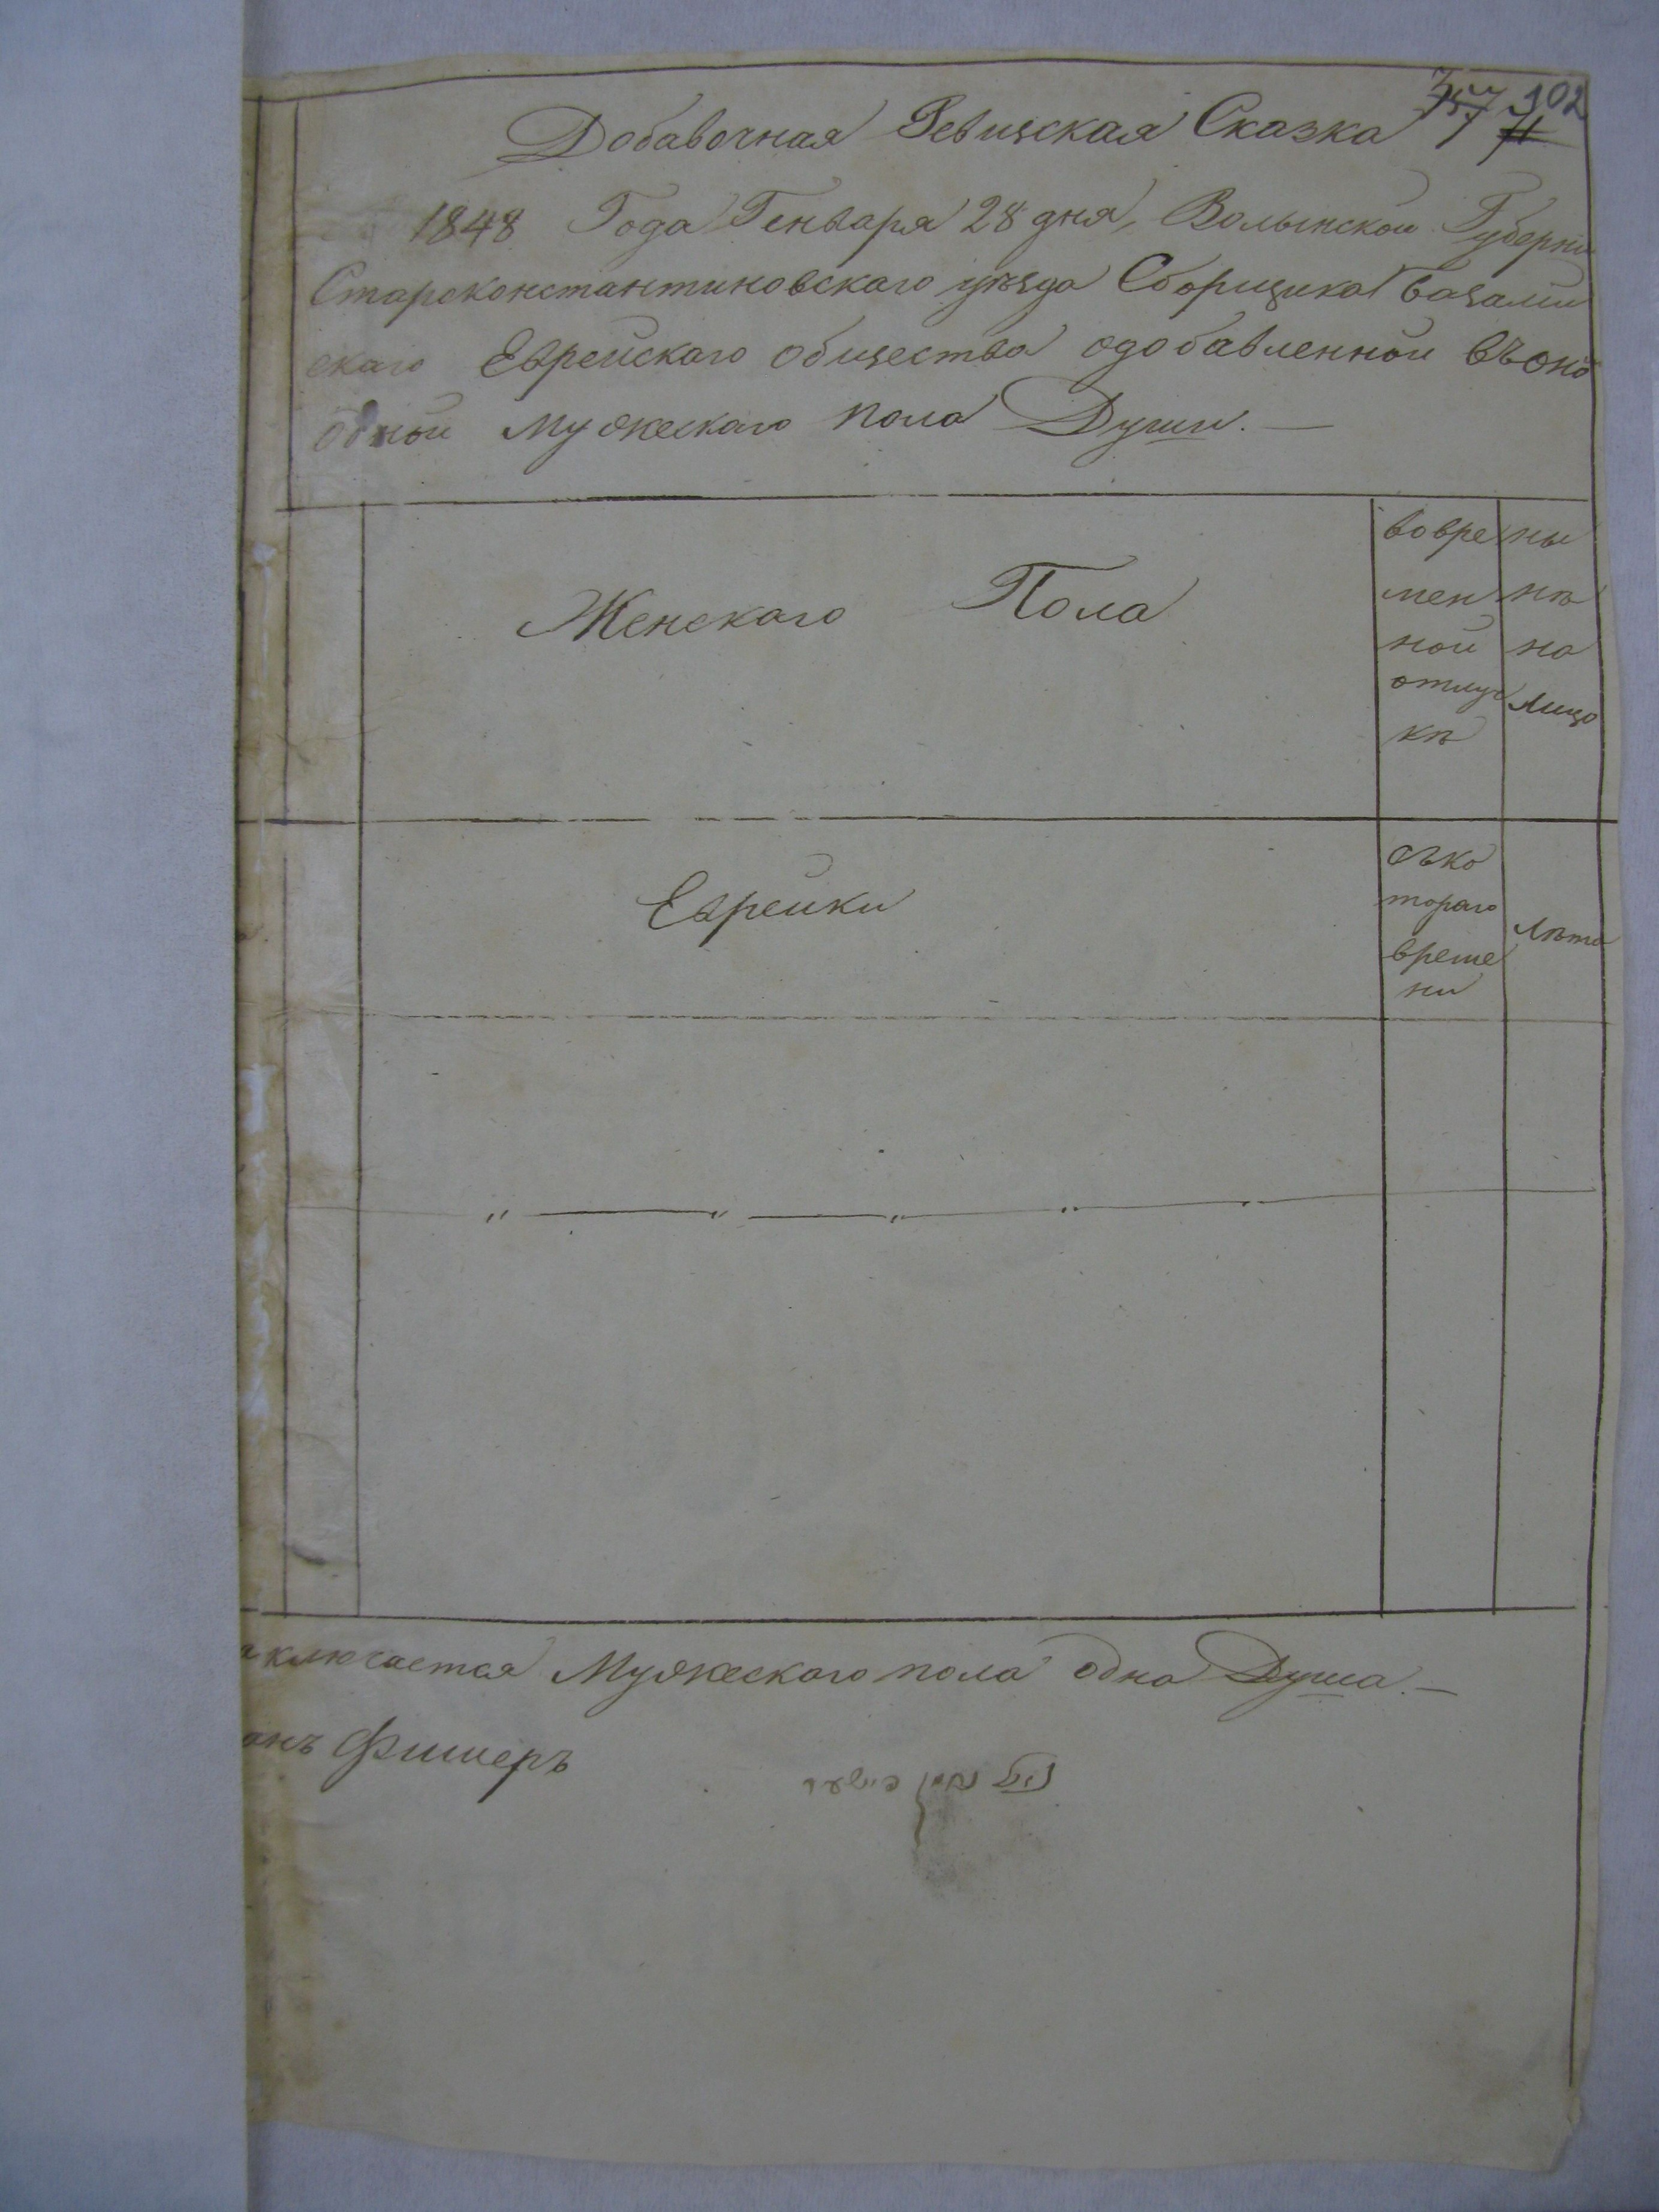 357 102
71
Добавочная Ревизская Сказка
1848 Года Генваря 28 дня, Волынской Губерни
Староконстантиновского уѣзда Сборщика Базалий
скаго Еврейскаго общества одобавленной въоно
одной мужескаго пола Души. —
Женскаго Пола
вовре
мен
ной
отлуч
кѣ
ны
нѣ
на
лицо
Еврейки
съко
тораго
време
ни
лѣта
" — " — " — " —
аключается Мужескаго пола одна Душа. —
анъ Фишеръ
פישער